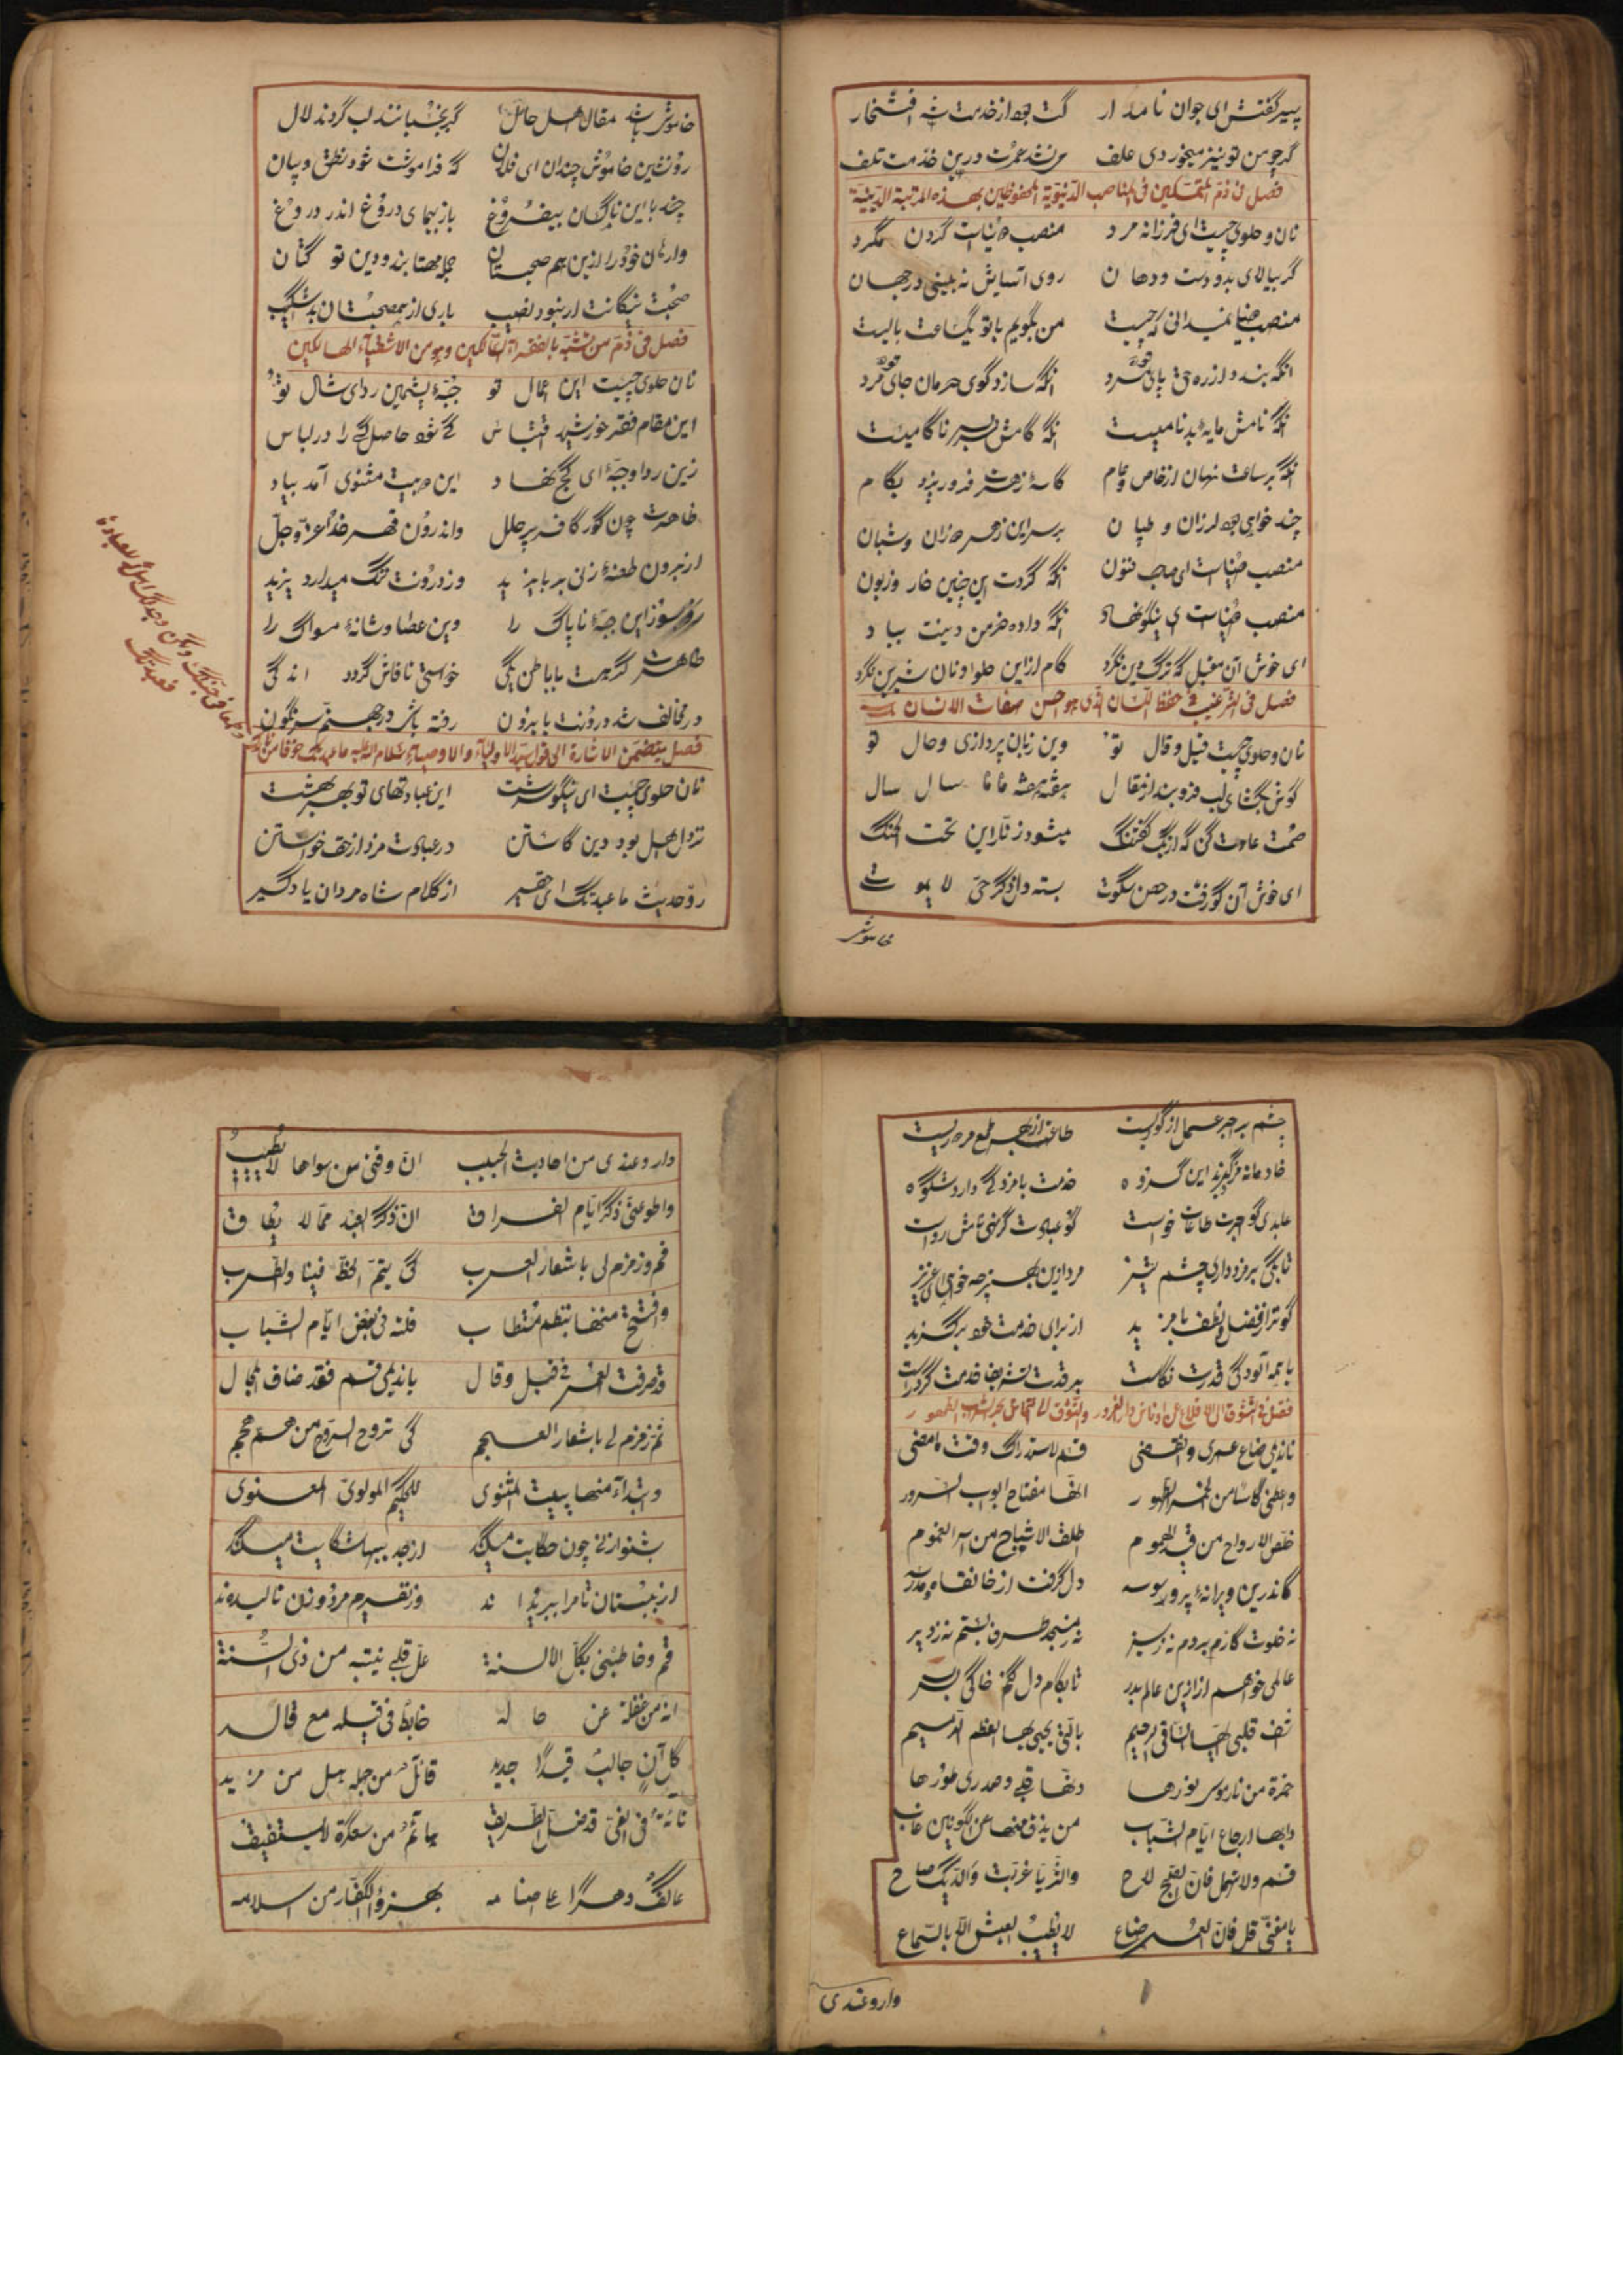 پیر گفتش ای جوان نامدار کت بود از خدمت شه افتخار
گر چو من تو نیز میخوردی علف کی شدی عمرت درین خدمت تلف
فصل فی ذم المتمکنین فی المناصب الدنیویة المحظوظین بهذه المرتبة الدنیة
نان و حلوا چیست ای فرزانه مرد منصب دنیاست گردن مگرد
گر بیالای بدو دست و دهان روی آسایش نه بینی در جهان
منصب دنیا نمیدانی که چیست من بگویم با تو یک ساعت بایست
آنکه بندد از ره حق پای مرد آنکه سازد کوی حرمان جای مرد
آنکه نامش مایهٔ بدنامیست آنکه کامش سر بسر ناکامیست
آنکه هر ساعت نهان از خاص و عام کاسهٔ زهرت فرو ریزد بکام
چند خواهی بود لرزان و طپان بر سر این زهر روزان و شبان
منصب دنیاست ای صاحب فنون آنکه کردت این چنین خوار و زبون
منصب دنیاست ای نیکو نهاد آنکه داده خرمن دینت بباد
ای خوش آن مقبل که ترک دین نکرد کام ازین حلوا و نان شیرین نکرد
فصل فی الترغیب فی حفظ اللسان الذی هو احسن صفات الانسان
نان و حلوا چیست قیل و قال تو وین زبان پردازی و حال تو
گوش بگشای لب فرو بند از مقال هفته هفته ماه ماه سال سال
صمت عادت کن که از یک گفتنک میشود زنار این تحت الحنک
ای خوش آن کو رفت در حصن سکوت بسته دل در ذکر حی لا یموت
خاموش
خاموش باش مقال اهل حال گر بجنبانند لب گردند لال
رو نشین خاموش چندان ای فلان که فراموشت شود نطق و بیان
چند با این ناکسان بیفروغ باز پیمای دروغ اندر دروغ
وارهان خود را ازین هم صحبتان جمله مهتابند و دین تو کتان
صحبت نیکانت ار نبود نصیب باری از هم صحبتان بد شکیب
فصل فی ذم من تشبه بالفقراء السالکین وهو من الاشقیاء الهالکین
نان حلوا چیست این اعمال تو جبهٔ پشمین ردای شال تو
این مقام فقر خورشید اقتباس کی شود حاصل کسی را در لباس
زین ردا و جبه ای کج نهاد این دو بیت مثنوی آمد بیاد
ظاهرت چون گور کافر پر حلل و اندرون قهر خدا عز و جل
از برون طعنه زنی بر بایزید وز درونت ننگ میدارد یزید
رو بسوز این جبهٔ ناپاک را وین عصا و شانهٔ مسواک را
ظاهرت گر هست با باطن یکی خواستی تا فاش گردد اندکی
ور مخالف شد درونت با برون رفته باشی در جهنم سرنگون
فصل یتضمن الاشارة الی قول سید الاولیاء و الاوصیاء سلام الله علیه ما عبدتک خوفا من نارک
و لا طمعا فی جنتک ولکن وجدتک اهلا للعبادة
فعبدتک
نان حلوا چیست ای نیکو سرشت این عبادتهای تو بهر بهشت
نزد اهل بود دین کاستن در عبادت مزد از حق خواستن
رو حدیث ما عبدتک ای حقیر از کلام شاه مردان یاد گیر
چشم بر اجر عمل از کوریست طاعت از بهر طمع مزدوریست
خادمانه مزد گیرند این گروه خدمت با مزد کی دارد شکوه
عابدی کو اجرت طاعات خواست گو عبادت گر نهی نامش رواست
تا بکی بر مزد داری چشم تیز مزد ازین بهتر چه خواهی ای عزیز
کو ترا از فضل و لطف با مزید از برای خدمت خود برگزید
با همه آلودگی قدرت نکاست بر قدت تشریف خدمت کرد راست
نادیمی ضاع عمری و انقضی قم لاستدراک وقت ما مضی
واعطنی کاسا من الخمر الطهور انها مفتاح ابواب السرور
خلص الارواح من قید الهموم اطلق الاشباح من اسر الغموم
کاندرین ویرانهٔ پر وسوسه دل گرفت از خانقاه و مدرسه
نه ز خلوت کام بردم نه ز سیر نه ز مسجد طرف بستم نه ز دیر
عالمی خواهم ازین عالم بدر تا بکام دل کنم خاکی بسر
اشف قلبی ایها الساقی الرحیم بالتی یحیی بها العظم الرمیم
خمرة من نار موسی نورها دنها قلبی و صدری طورها
دابها ارجاع ایام الشباب من یذق منها عن الکونین غاب
قم ولا تمهل فان الصبح لاح والثریا غربت والدیک صاح
یا مغنی قل فان العمر ضاع لا یطیب العیش الا بالسماع
وارو عندی
وارو عندی من احادیث الحبیب ان وقتی من سواها لا یطیب
واطو عنی ذکر ایام الفراق ان ذکر البعد مما لا یطاق
قم و زمزم لی باشعار العرب کی یتم الحظ فینا والطرب
وافتتح منها بنظم مستطاب قلته فی بعض ایام الشباب
قد صرفت العمر فی قیل و قال یا ندیمی قم فقد ضاق المجال
ثم زمزم لی باشعار العجم کی تروح الروح من هم هجم
وابتداء منها ببیت المثنوی للحکیم المولوی المعنوی
بشنو از نی چون حکایت میکند از جداییها شکایت میکند
از نیستان تا مرا ببریده اند وز نفیرم مرد و زن نالیده اند
قم و خاطبنی بکل الالسنة عل قلبی ینتبه من ذی السنة
انه من غفلة عن حاله خابط فی قیله مع قاله
کل آن جالب قیدا جدید قائلا من جهله هل من مزید
تائه فی الغی قد ضل الطریق هائم من سکرة لا یستفیق
عاکف دهرا علی اصنامه یهزؤ الکفار من اسلامه